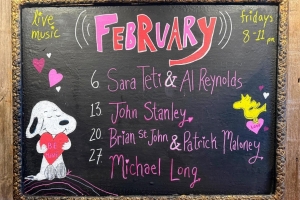 live music
FEBRUARY
fridays
8-11 pm
6 Sara Teti & Al Reynolds
13. John Stanley
20. Brian St. John & Patrick Maloney
27 Michael Long